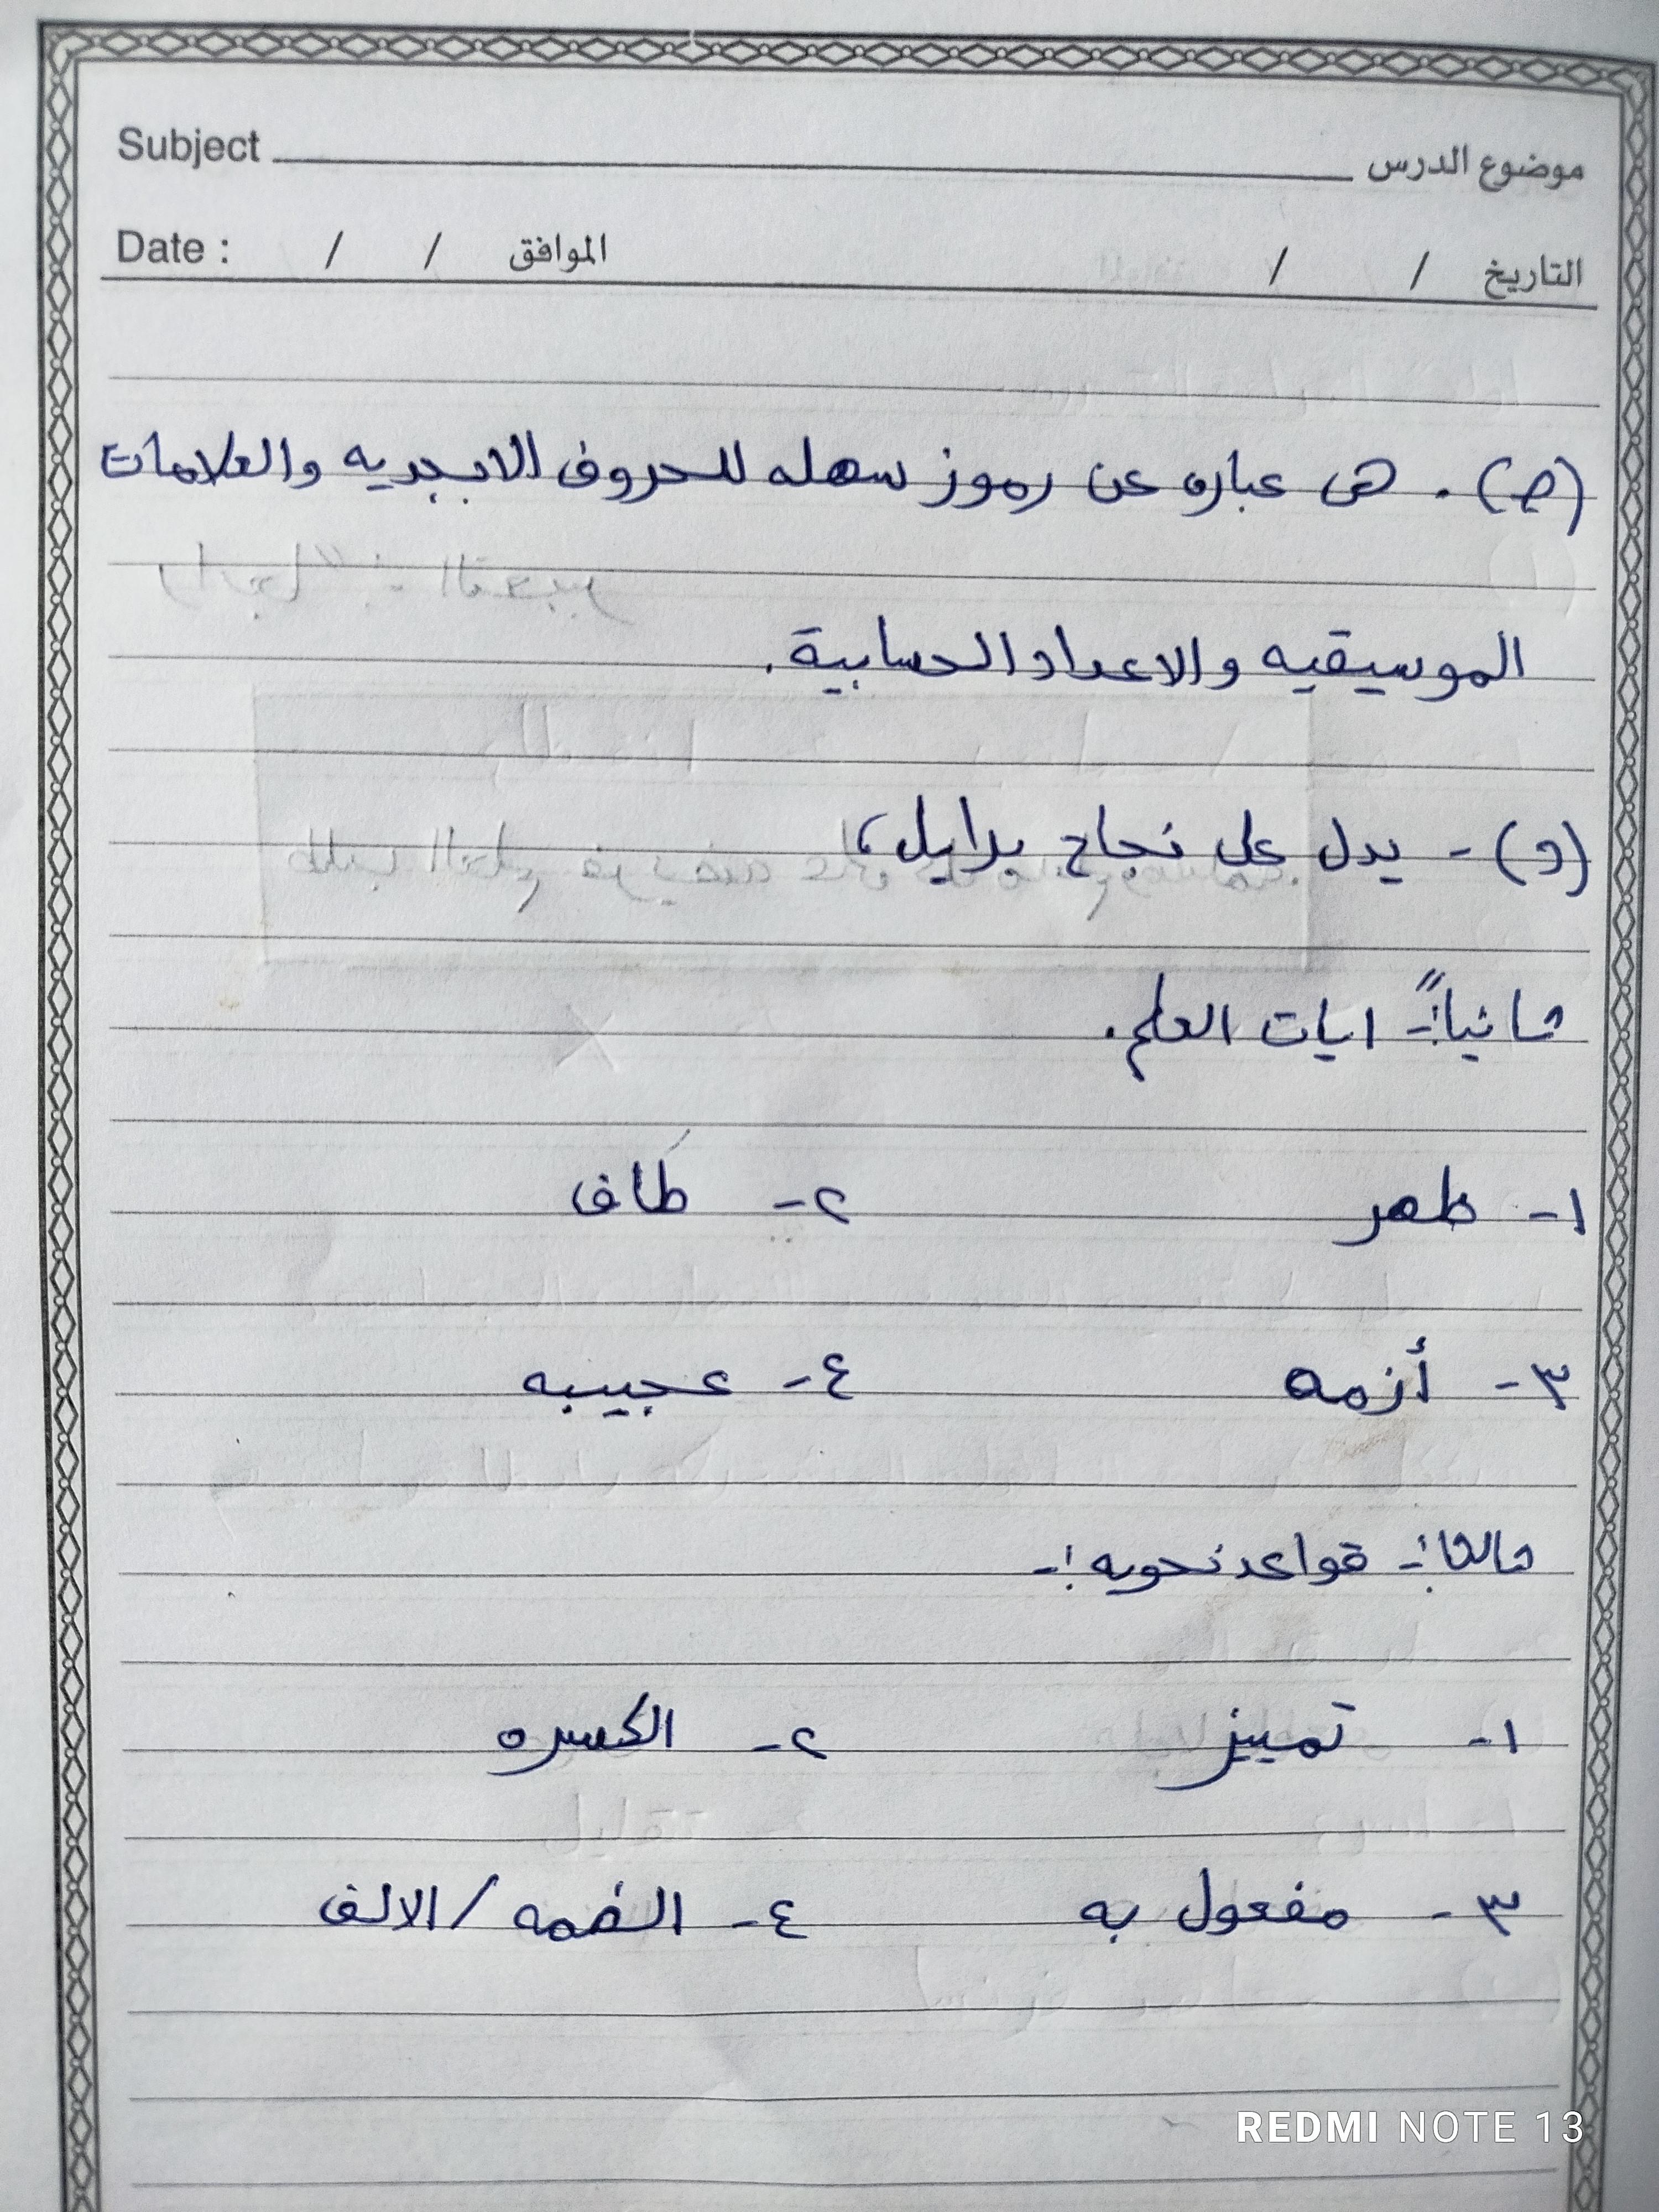 Subject موضوع الدرس
Date : / / الموافق / / التاريخ
(ج) . هى عباره عن رموز سهله للحروف الابجديه والعلامات
الموسيقيه والاعداد الحسابية .
(د) - يدل على نجاح برايل ،
ثانياً :- ايات العلم .
١- ظهر ٢- طَاف
٣- أزمه ٤- عجيبه
ثالثا :- قواعد نحويه :-
١- تمييز ٢- الكسره
٣- مفعول به ٤- الضمه / الالف
REDMI NOTE 13